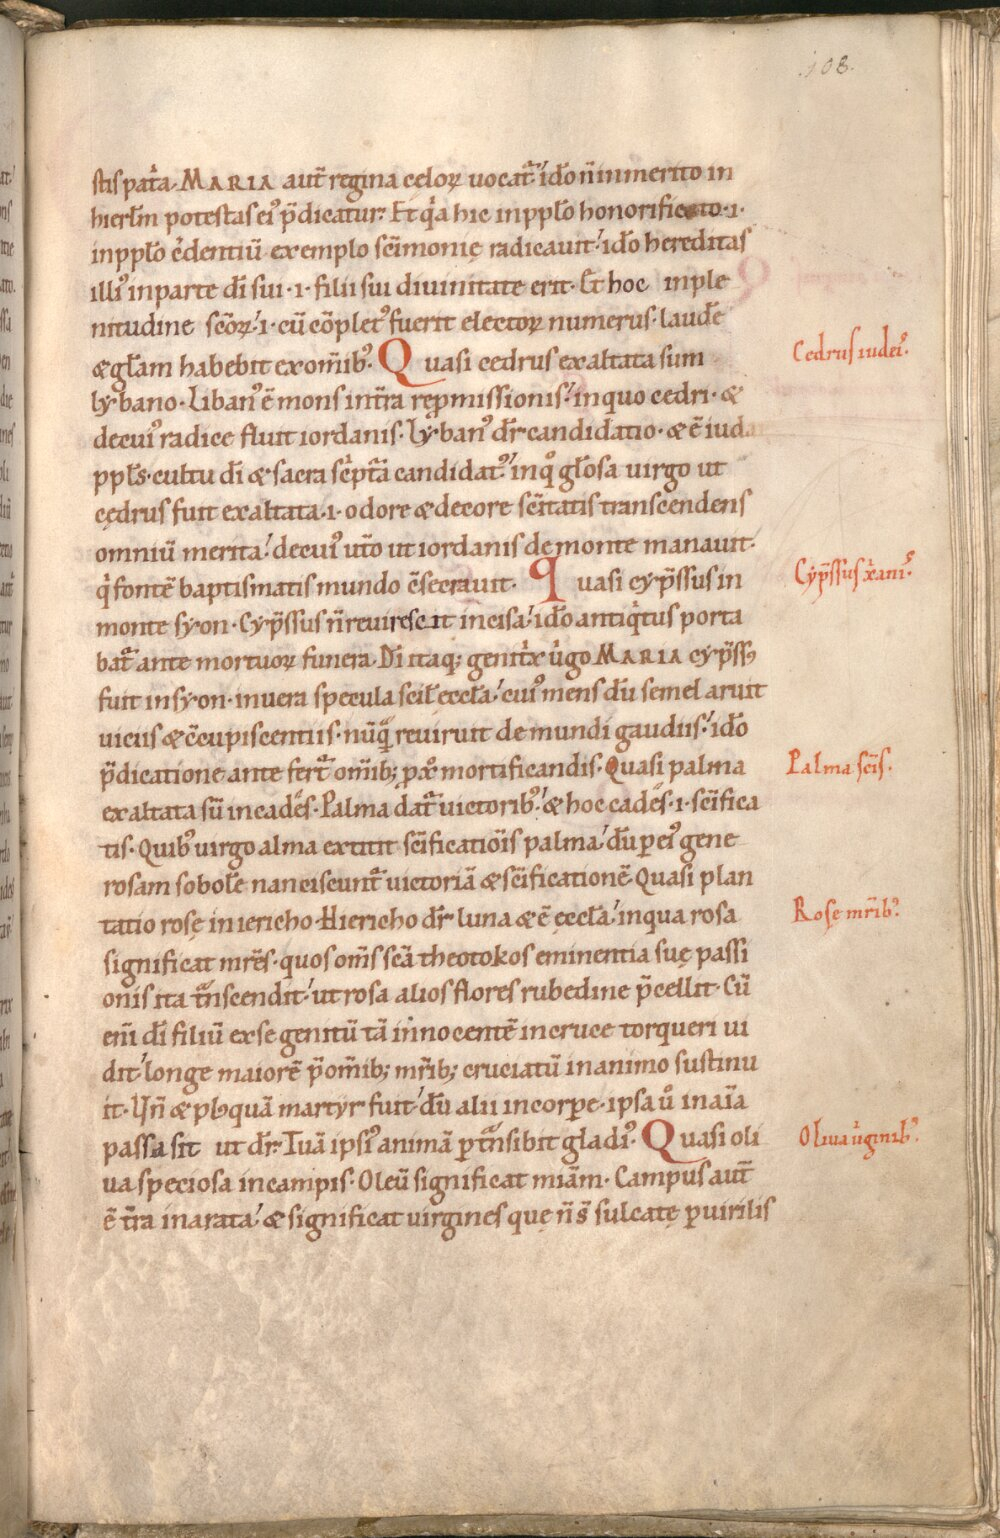 .108.
stis pat̄a. MARIA aut̄ regina celoꝝ uocat᷑. id̄o n̄ inmerito in
hierl̄m potestas ei᷒ p̄dicatur. Et qͥa hic in ppl̄o honorificato .i.
in ppl̄o c̄dentiū exemplo sc̄imonię radicauit. id̄o hereditas
illi᷒ in parte dī sui .i. filii sui diuinitate erit. Et hoc in ple
nitudine sc̄oꝝ .i. cū cōplet᷒ fuerit electoꝝ numerus. laud̄e
& gl̄am habebit ex om̄ib᷒. Quasi cedrus exaltata sum
Cedrus iudei᷒.
lybano. Liban᷒ ē mons in t̄ra rep̱missionis. in quo cedri. &
de cui᷒ radice fluit iordanis. Lyban᷒ dr̄ candidatio. & ē iuda
ppl̄s. cultu dī & sacra sc̄pt̄a candidat᷒. in qͦ gl̄osa uirgo ut
cędrus fuit exaltata .i. odore & decore sc̄itatis transcendens
omniū merita. de cui᷒ ut̄o ut iordanis de monte manauit.
qͥ fontē baptismatis mundo c̄secrauit. Quasi cyp̄ssus in
Cyp̄ssus xͥani᷒.
monte syon. Cyp̄ssus n̄ reuirescit incisa. id̄o antiqͥtus porta
bat᷑ ante mortuoꝝ funera. Dī itaq; genitͥx uͥgo MARIA cyp̄ss᷒
fuit in syon. in uera specula scil̄ eccl̄a. cui᷒ mens dū semel aruit
uiciis & c̄cupiscentiis. nūqͣ̄ reuiruit de mundi gaudiis. id̄o
p̄dicatione ante fert᷑ om̄ib; ꝓx̄o mortificandis. Quasi palma
Palma sc̄is.
exaltata sū in cad̄es. Palma dat᷑ uictorib᷒. & hoc cad̄es .i. sc̄ifica
tis. Quib᷒ uirgo alma extitit sc̄ificatiōis palma. dū ꝑ ei᷒ gene
rosam sobol̄e nanciscunt᷑ uictoriā & sc̄ificationē. Quasi plan
tatio rosę in iericho. Hiericho dr̄ luna & ē ęccl̄a. in qua rosa
Rosę mr̄ib᷒.
significat mr̄es. quos om̄s sc̄a theotokos eminentia suę passi
onis ita tͣnscendit. ut rosa alios flores rubedine p̄cellit. Cū
eni̅ dī filiū ex se genitū tā innocentē in cruce torqueri ui
dit. longe maiorē p̄ om̄ib; mr̄ib; cruciatū in animo sustinu
it. Un̄ & plusquā martyr fuit. dū alii in corpe. ipsa uͦ in aīa
passa sit ut dr̄. Tuā ipsi᷒ animā ꝑtͣnsibit gladi᷒. Quasi oli
Oliua uͥginib᷒.
ua speciosa in campis. Oleū significat miā̄m. Campus aut̄
ē t̄ra inarata. & significat uirgines quę n̄ s̄ sulcatę ꝑ uirilis